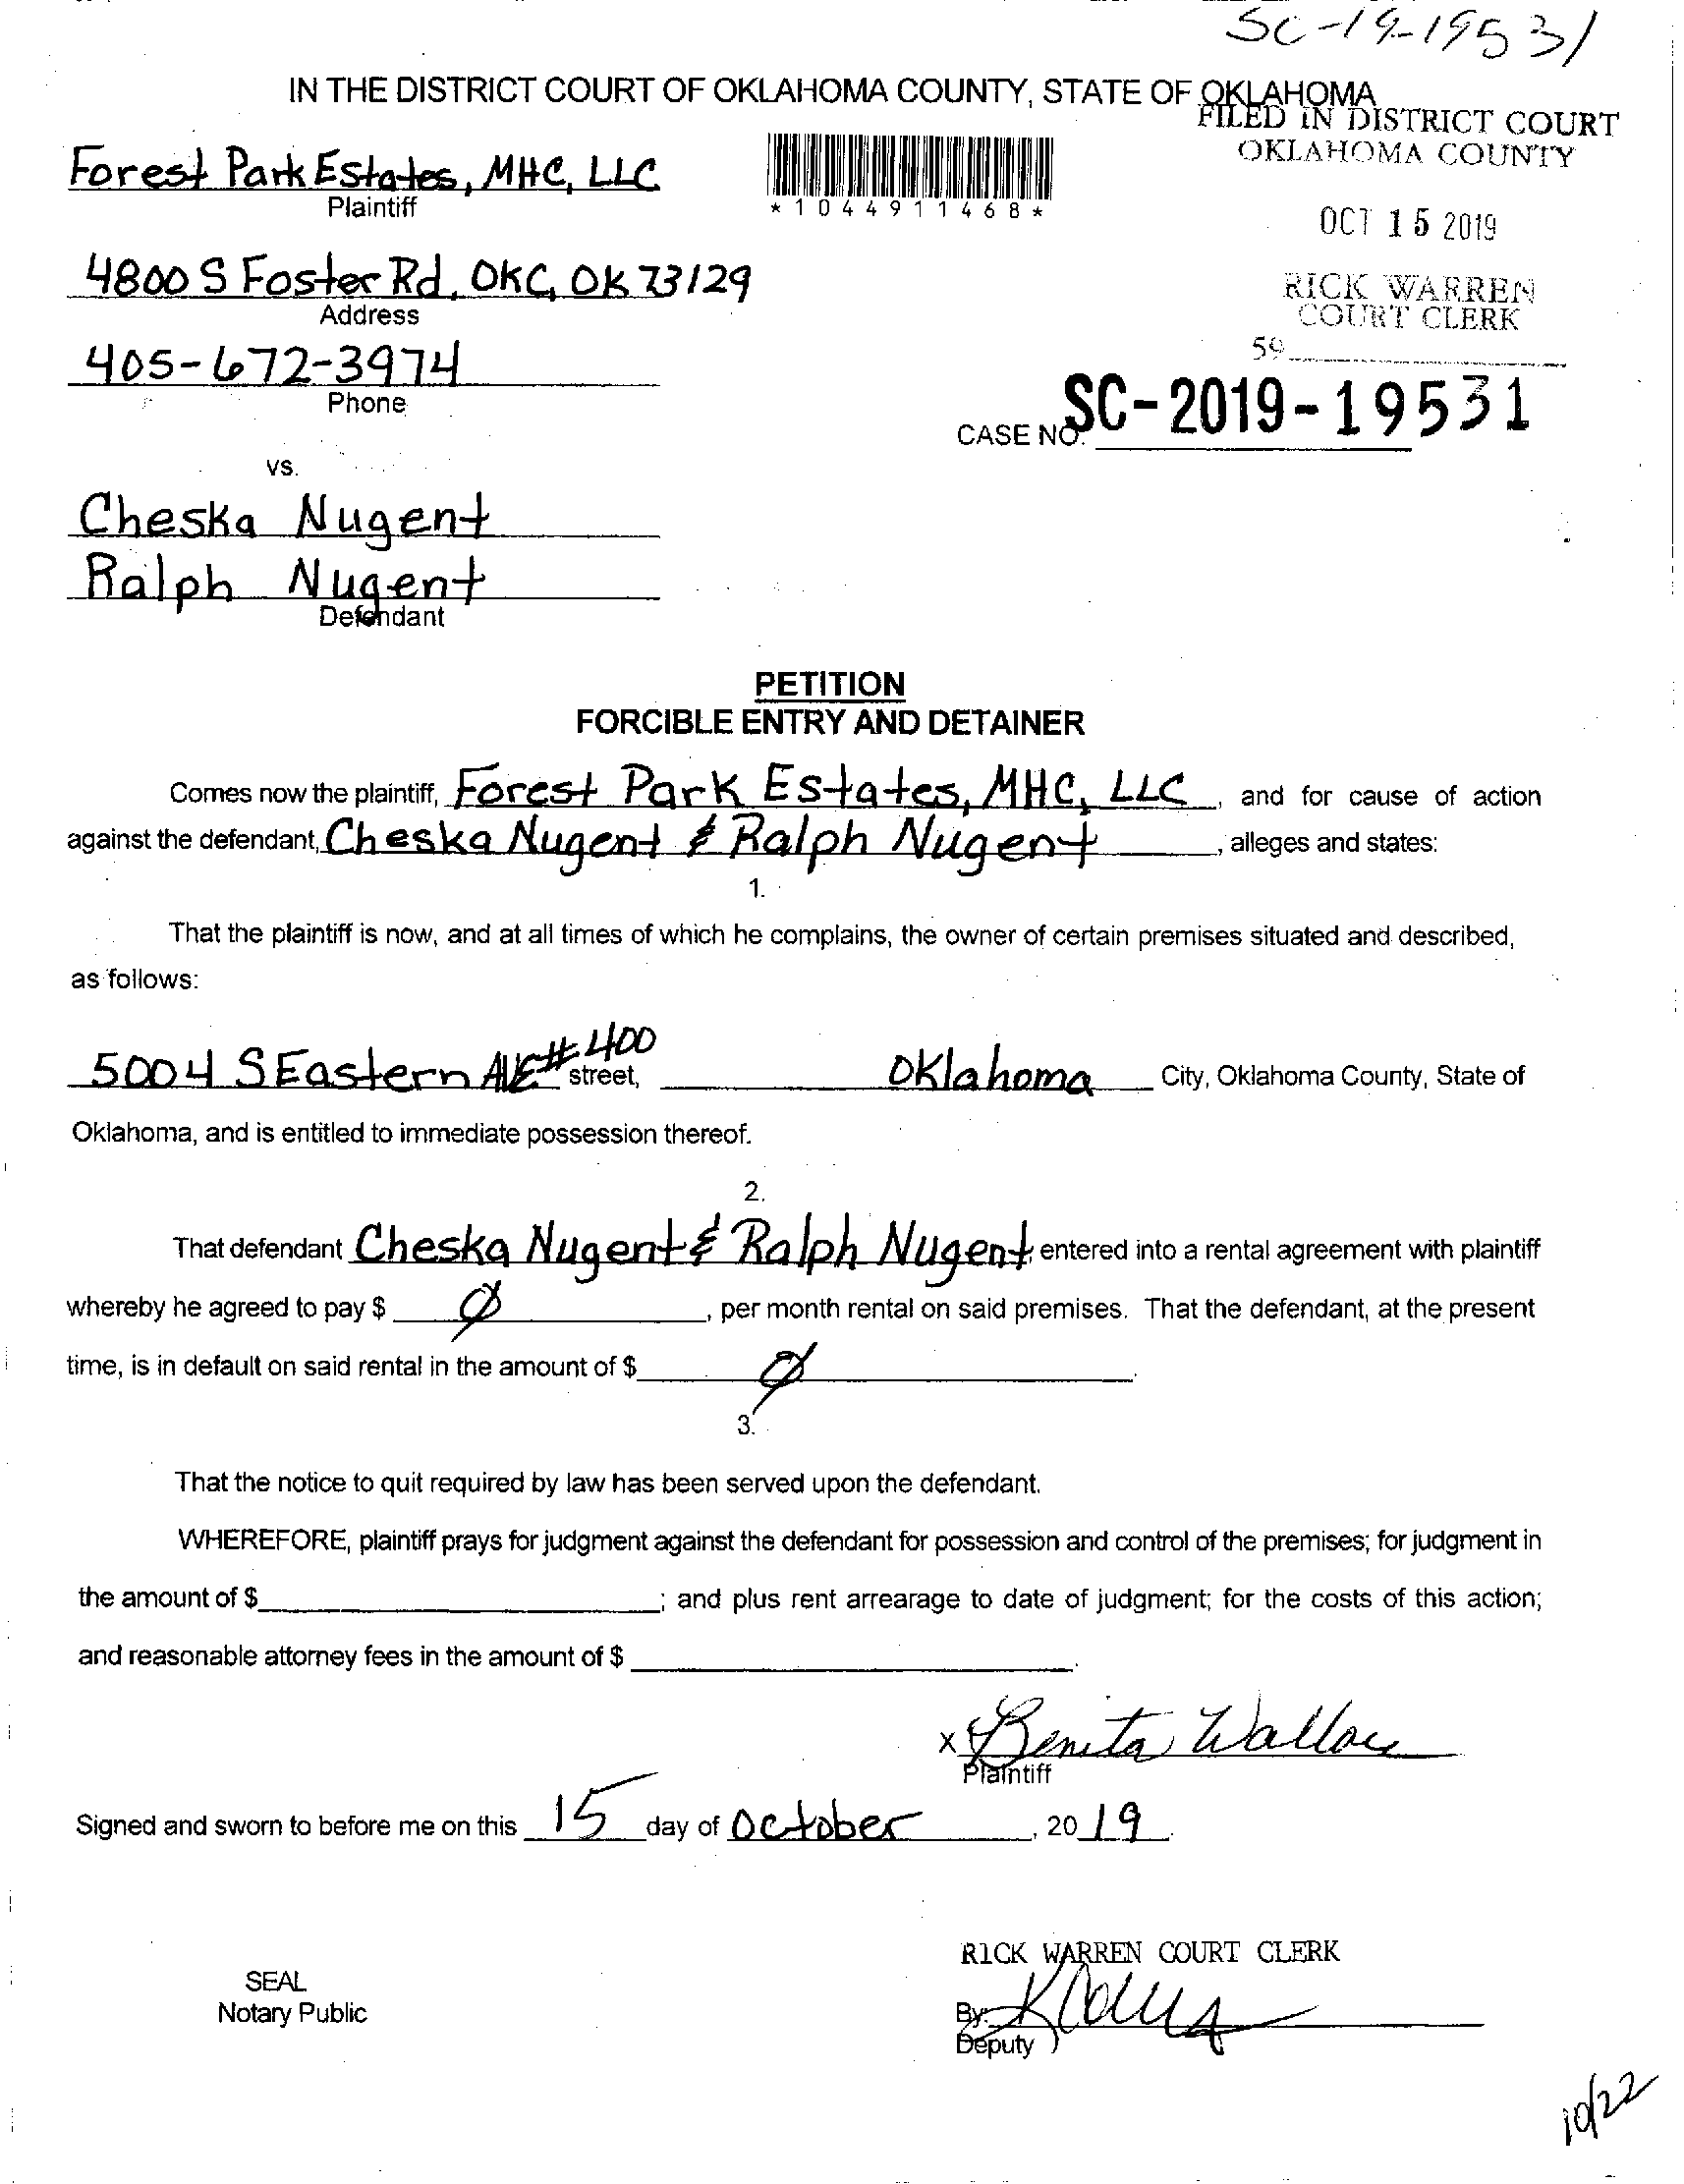 SC-19-19531
IN THE DISTRICT COURT OF OKLAHOMA COUNTY, STATE OF OKLAHOMA
FILED IN DISTRICT COURT
OKLAHOMA COUNTY
Forest Park Estates, MHC, LLC
Plaintiff
*1044911468*
OCT 15 2019
4800 S Foster Rd, OKC, OK 73129
Address
RICK WARREN
COURT CLERK
59
405-672-3974
Phone
CASE NO. SC-2019-19531
vs.
Cheska Nugent
Ralph Nugent
Defendant
PETITION
FORCIBLE ENTRY AND DETAINER
Comes now the plaintiff, Forest Park Estates, MHC, LLC, and for cause of action
against the defendant, Cheska Nugent & Ralph Nugent, alleges and states:
1.
That the plaintiff is now, and at all times of which he complains, the owner of certain premises situated and described,
as follows:
5004 S Eastern AVE #400 street, Oklahoma City, Oklahoma County, State of
Oklahoma, and is entitled to immediate possession thereof.
2.
That defendant Cheska Nugent & Ralph Nugent entered into a rental agreement with plaintiff
whereby he agreed to pay $ Ø, per month rental on said premises. That the defendant, at the present
time, is in default on said rental in the amount of $ Ø.
3.
That the notice to quit required by law has been served upon the defendant.
WHEREFORE, plaintiff prays for judgment against the defendant for possession and control of the premises; for judgment in
the amount of $ ; and plus rent arrearage to date of judgment; for the costs of this action;
and reasonable attorney fees in the amount of $ .
x Benita Wallace
Plaintiff
Signed and sworn to before me on this 15 day of October, 2019.
RICK WARREN COURT CLERK
SEAL
Notary Public
By:
Deputy
10/22